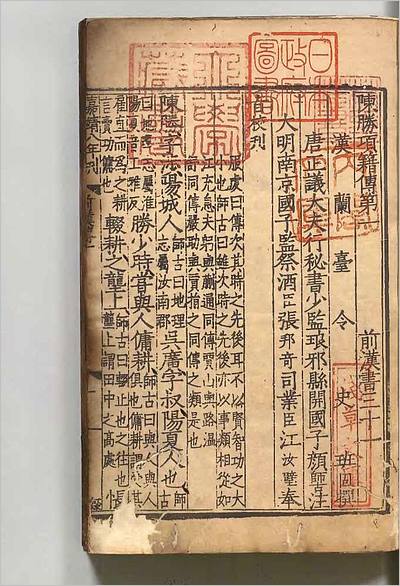 陳勝項籍傳第一 前漢書三十一
漢蘭臺令史班固撰
唐正議大夫行秘書少監琅邪縣開國子顏師古注
大明南京國子監祭酒臣張邦奇司業臣江汝璧奉
旨校刊
服虔曰傳次其時之先後耳不以賢智功之大
小也師古曰雖次時之先後亦以事類相從如
江充息夫躬與蒯通同傳賈山與路溫
舒同傳嚴助與賈捐之同傳之類是也
陳勝字涉陽城人師古曰地理志屬汝南郡吳廣字叔陽夏人也師古
曰地理志屬淮陽夏音工雅反勝少時嘗與人傭耕師古曰與人與人俱也傭耕謂
雇直而為之耕言賣功傭也輟耕之壟上師古曰輟止也之往也壟上謂田中之高處悵
嘉靖八年刊
日本政府圖書
淺草文庫